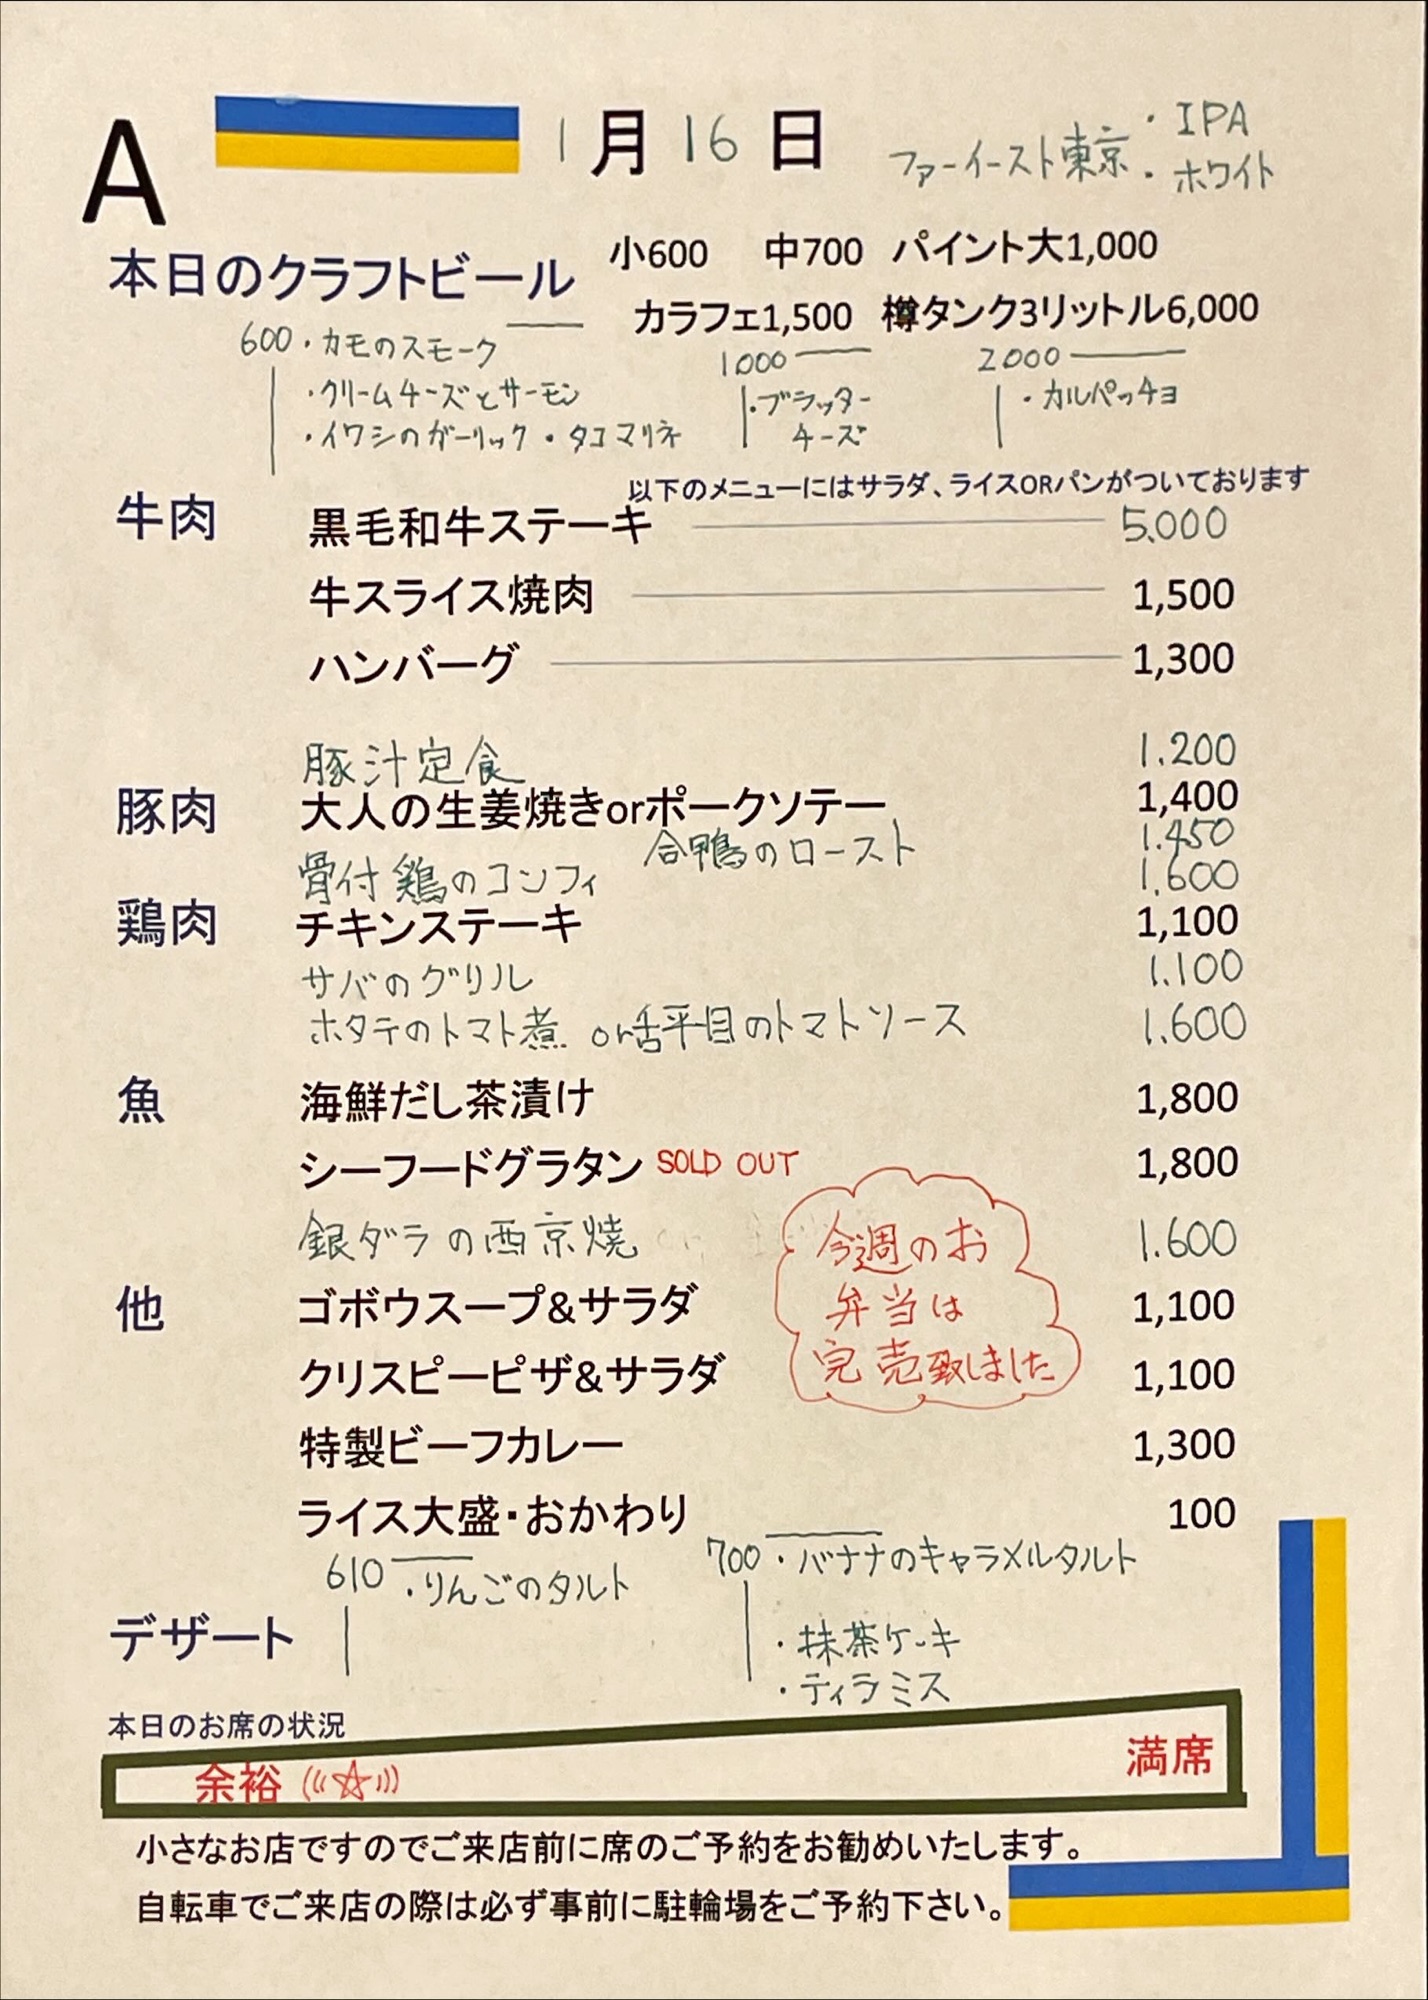 A 1月16日 ファーイースト東京 ・IPA
・ホワイト
本日のクラフトビール 小600 中700 パイント大1,000
カラフェ1,500 樽タンク3リットル6,000
600 ・カモのスモーク
・クリームチーズとサーモン
・イワシのガーリック・タコマリネ
1000
・ブラッター
チーズ
2000
・カルパッチョ
以下のメニューにはサラダ、ライスORパンがついております
牛肉 黒毛和牛ステーキ 5,000
牛スライス焼肉 1,500
ハンバーグ 1,300
豚汁定食 1.200
豚肉 大人の生姜焼きorポークソテー 1,400
合鴨のロースト 1.450
骨付鶏のコンフィ 1.600
鶏肉 チキンステーキ 1,100
サバのグリル 1.100
ホタテのトマト煮 or舌平目のトマトソース 1.600
魚 海鮮だし茶漬け 1,800
シーフードグラタン SOLD OUT 1,800
銀ダラの西京焼 1.600
今週のお
弁当は
完売致しました
他 ゴボウスープ&サラダ 1,100
クリスピーピザ&サラダ 1,100
特製ビーフカレー 1,300
ライス大盛・おかわり 100
デザート
610 ・りんごのタルト
700 ・バナナのキャラメルタルト
・抹茶ケーキ
・ティラミス
本日のお席の状況
余裕 ((☆))) 満席
小さなお店ですのでご来店前に席のご予約をお勧めいたします。
自転車でご来店の際は必ず事前に駐輪場をご予約下さい。